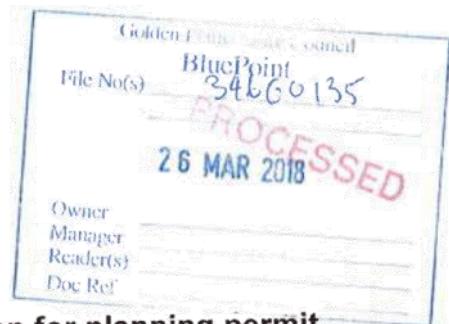 Golden Council
BluePoint
File No(s)
PROCESSED
26 MAR 2018
Owner
Manager
Reader(s)
Doc Ref
for planning permit